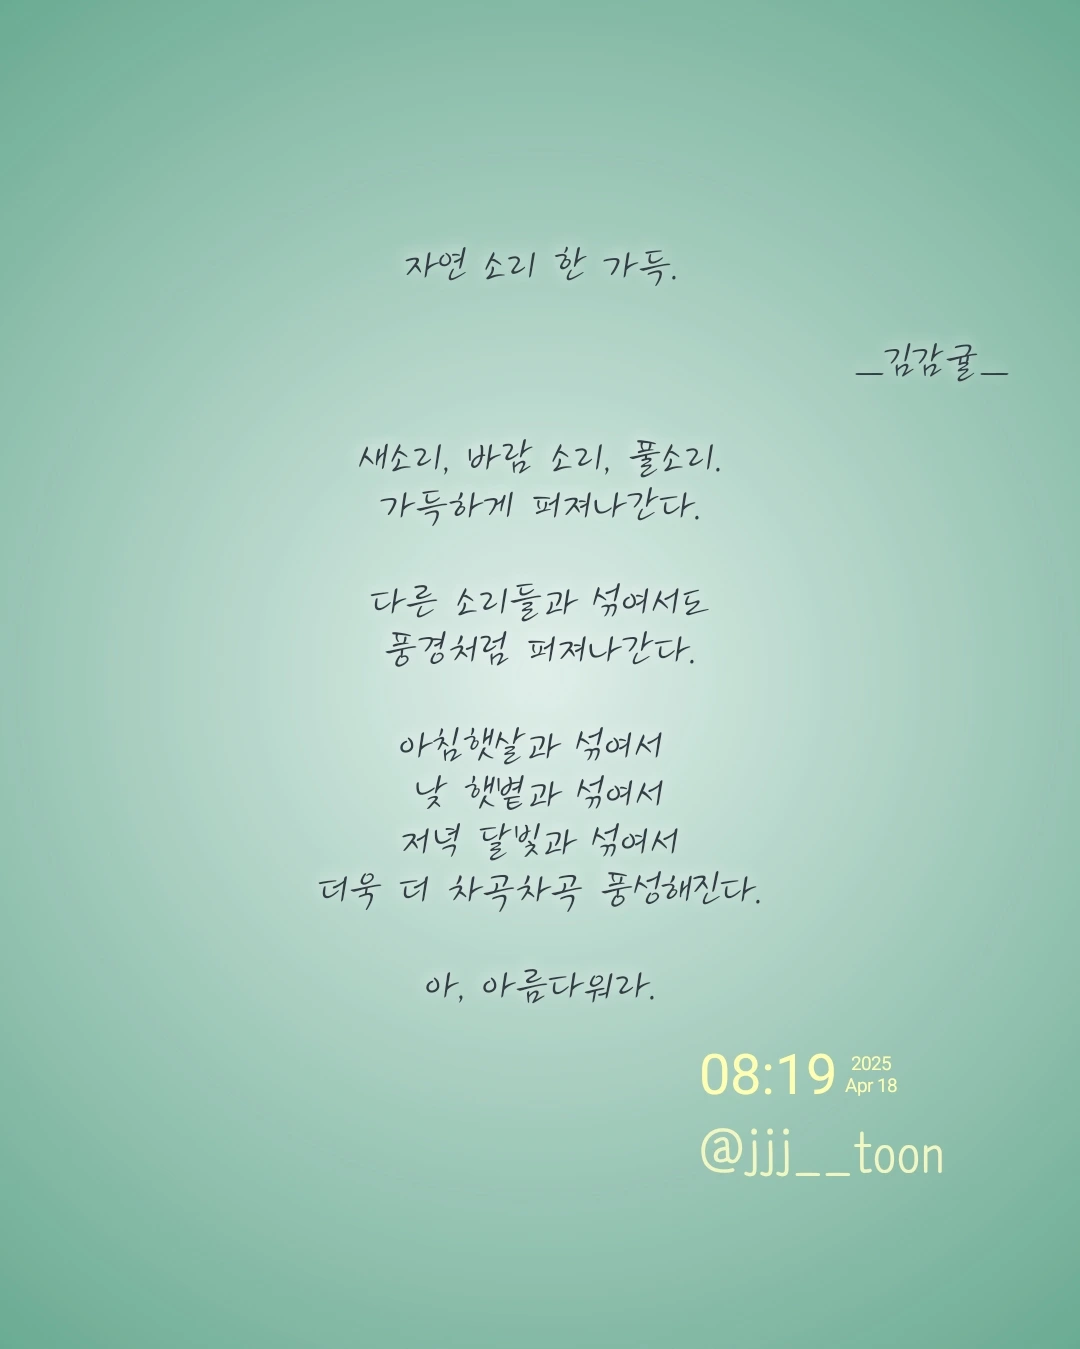 자연 소리 한 가득.
_김감귤_
새소리, 바람 소리, 풀소리.
가득하게 퍼져나간다.
다른 소리들과 섞여서도
풍경처럼 퍼져나간다.
아침햇살과 섞여서
낮 햇볕과 섞여서
저녁 달빛과 섞여서
더욱 더 차곡차곡 풍성해진다.
아, 아름다워라.
08:19 2025
Apr 18
@jjj__toon